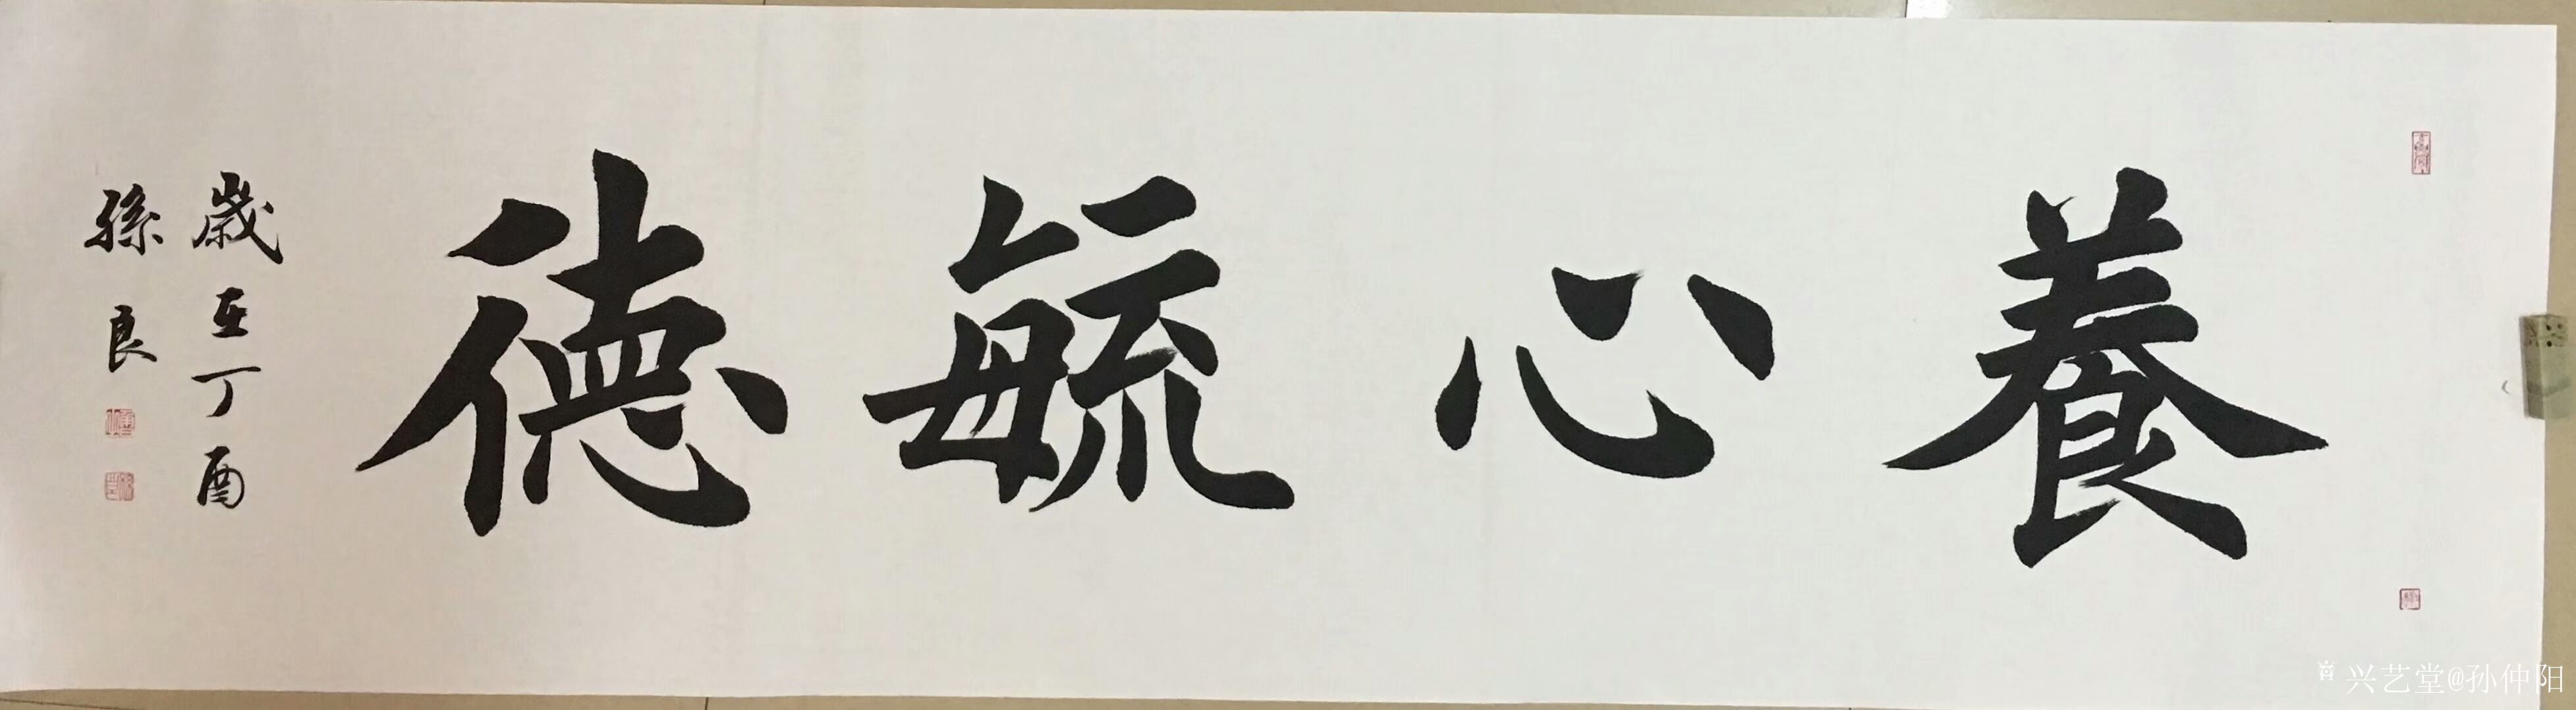 養心毓德
歲在丁酉
孫良
兴艺堂@孙仲阳